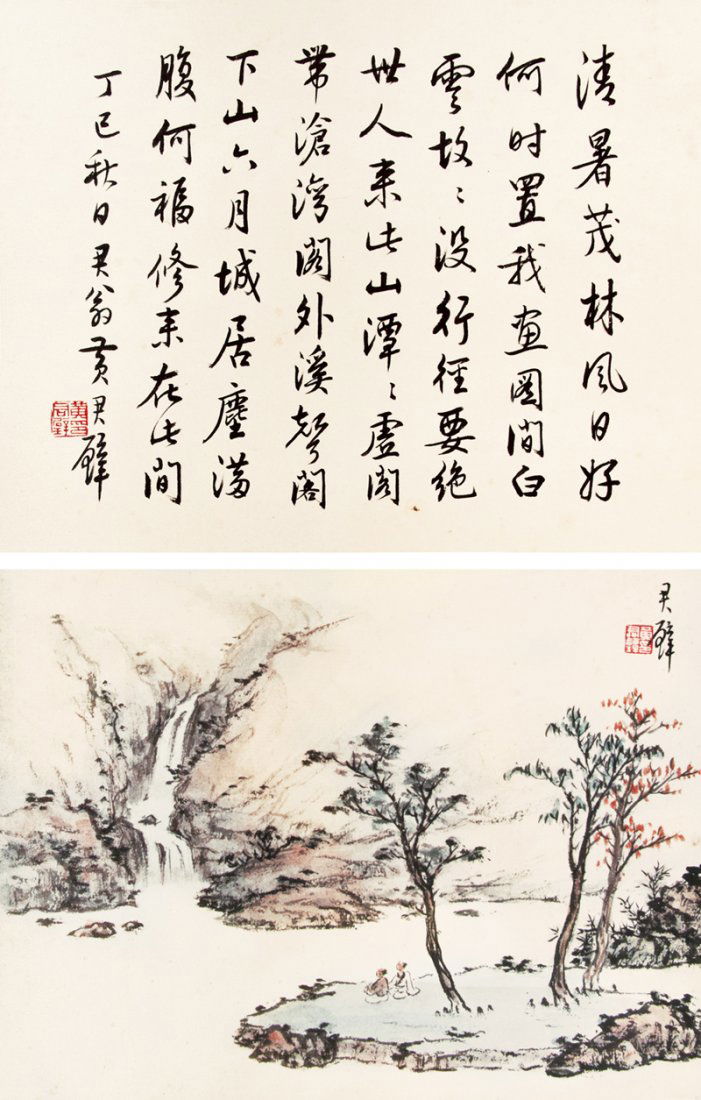 清暑茂林风日好
何时置我画图间白
云故〻没行径要绝
世人来此山潭〻虚阁
带沧湾阁外溪声阁
下山六月城居尘满
腹何福修来在此间
丁巳秋日君翁黄君璧
君璧